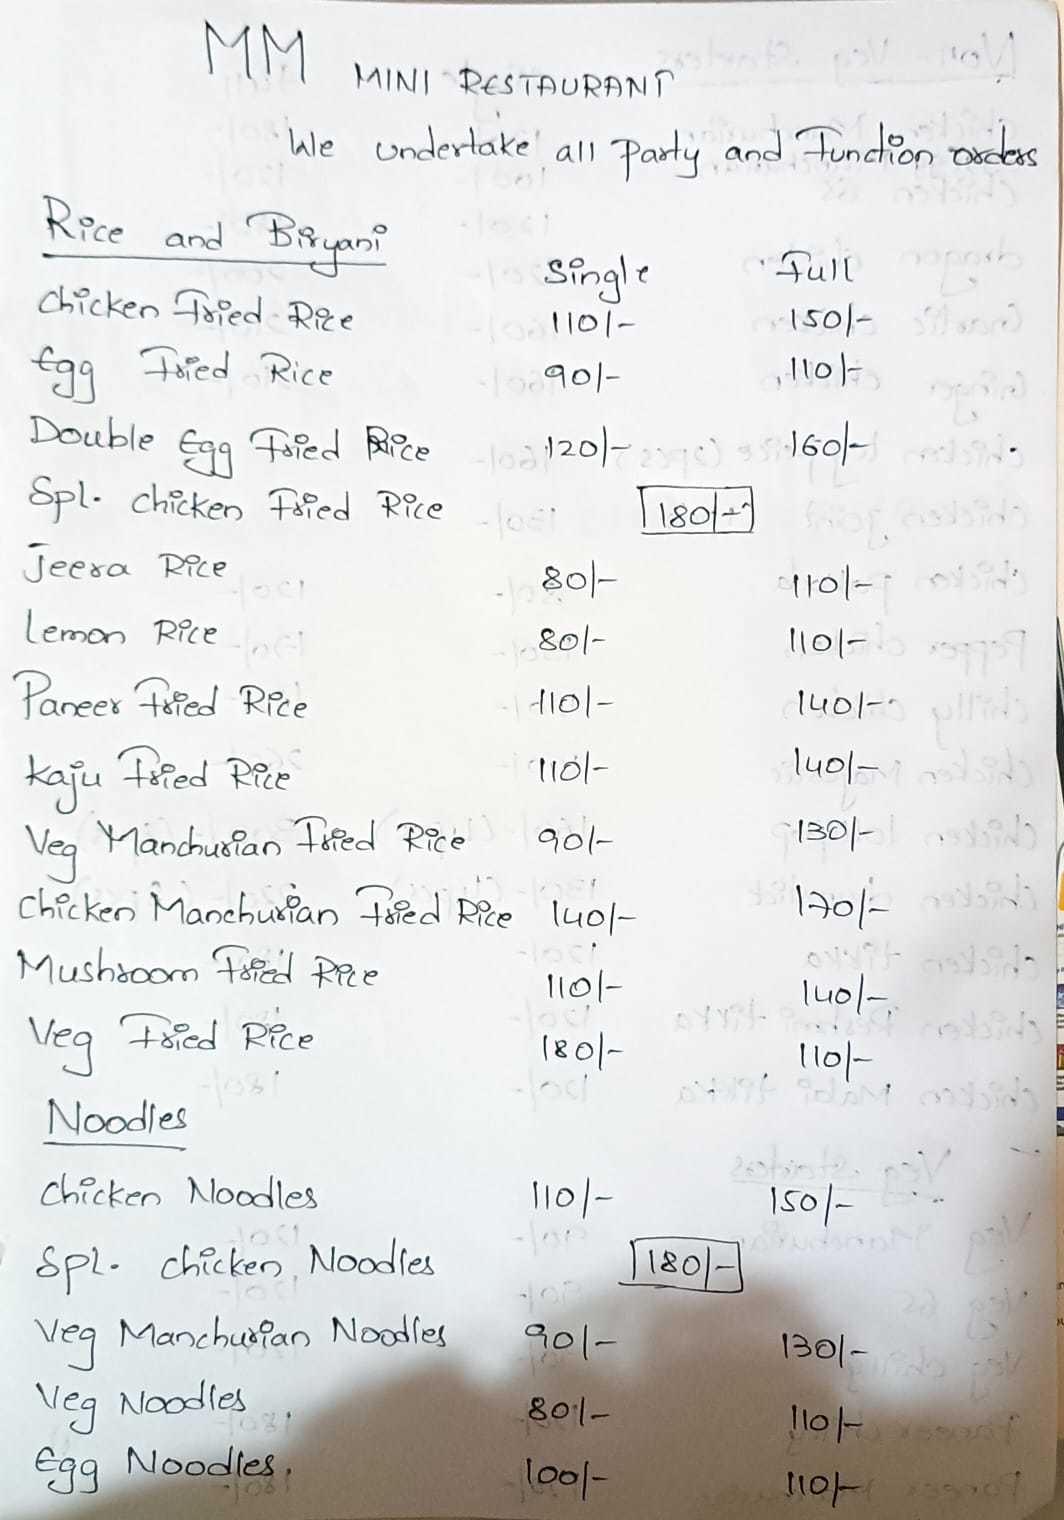 MM MINI RESTAURANT
We undertake all Party and Function orders
Rice and Biryani
Single Full
Chicken Fried Rice 110/- 150/-
Egg Fried Rice 90/- 110/-
Double Egg Fried Rice 120/- 160/-
Spl. chicken Fried Rice 180/-
Jeera Rice 80/- 110/-
Lemon Rice 80/- 110/-
Paneer Fried Rice 110/- 140/-
Kaju Fried Rice 110/- 140/-
Veg Manchurian Fried Rice 90/- 130/-
Chicken Manchurian Fried Rice 140/- 170/-
Mushroom Fried Rice 110/- 140/-
Veg Fried Rice 180/- 110/-
Noodles
Chicken Noodles 110/- 150/-
Spl. chicken Noodles 180/-
Veg Manchurian Noodles 90/- 130/-
Veg Noodles 80/- 110/-
Egg Noodles. 100/- 110/-